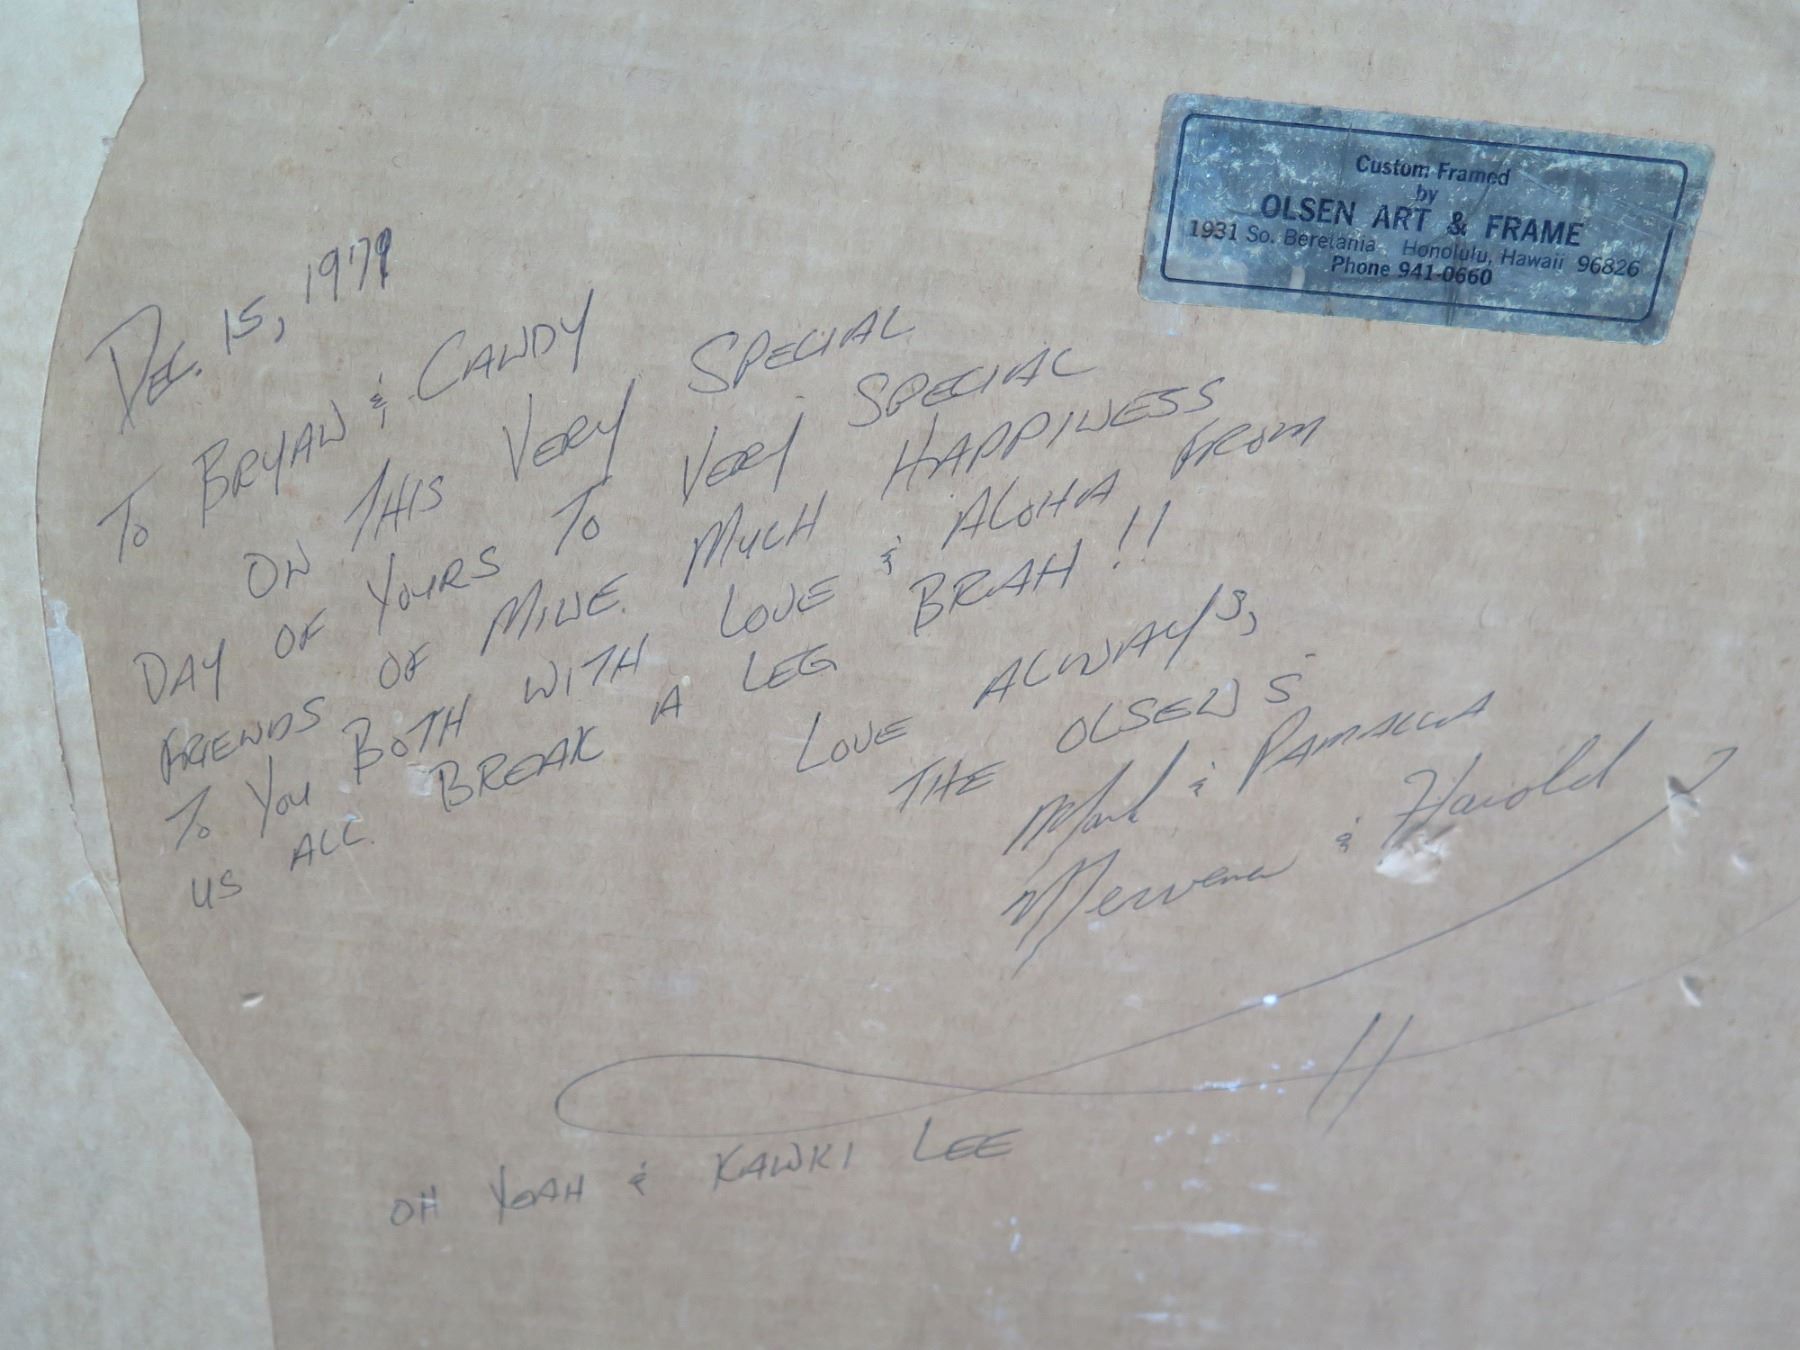 Custom Framed
by
OLSEN ART & FRAME
1931 So. Beretania Honolulu, Hawaii 96826
Phone 941-0660
DEC. 15, 1979
TO BRYAN & CANDY
ON THIS VERY SPECIAL
DAY OF YOURS TO VERY SPECIAL
FRIENDS OF MINE. MUCH HAPPINESS
TO YOU BOTH WITH LOVE & ALOHA FROM
US ALL. BREAK A LEG BRAH!!
LOVE ALWAYS,
THE OLSENS
Mark & PAMALLA
Mervena & Harold
OH YEAH & KAWKI LEE